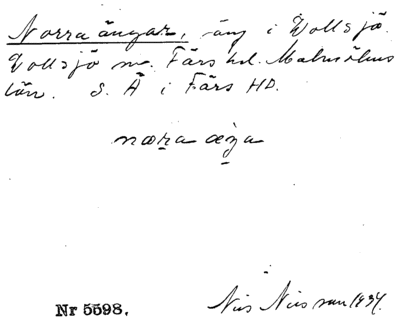 Norra ängar, äng i Vollsjö.
Vollsjö sn. Färs hd. Malmöhus
län. S. Å i Färs HD.
nɷra æŋa
Nr 5598.
Nils Nilsson 1934.